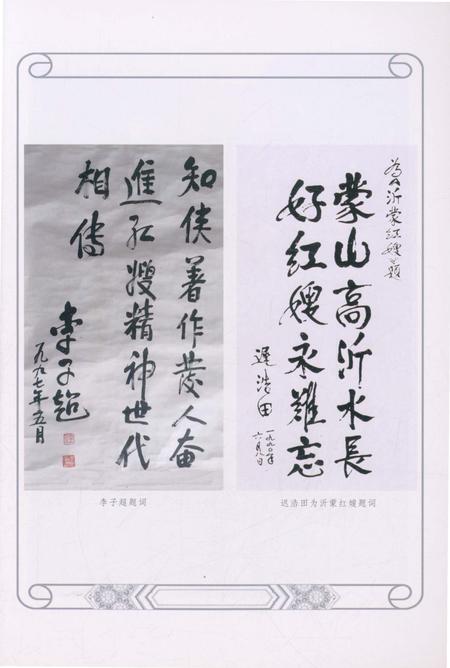 知侠著作发人奋
進红嫂精神世代
相傳
李子超
一九九七年五月
李子超题词
為沂蒙红嫂题
蒙山高沂水長
好红嫂永難忘
遲浩田
一九九〇年
六月八日
迟浩田为沂蒙红嫂题词